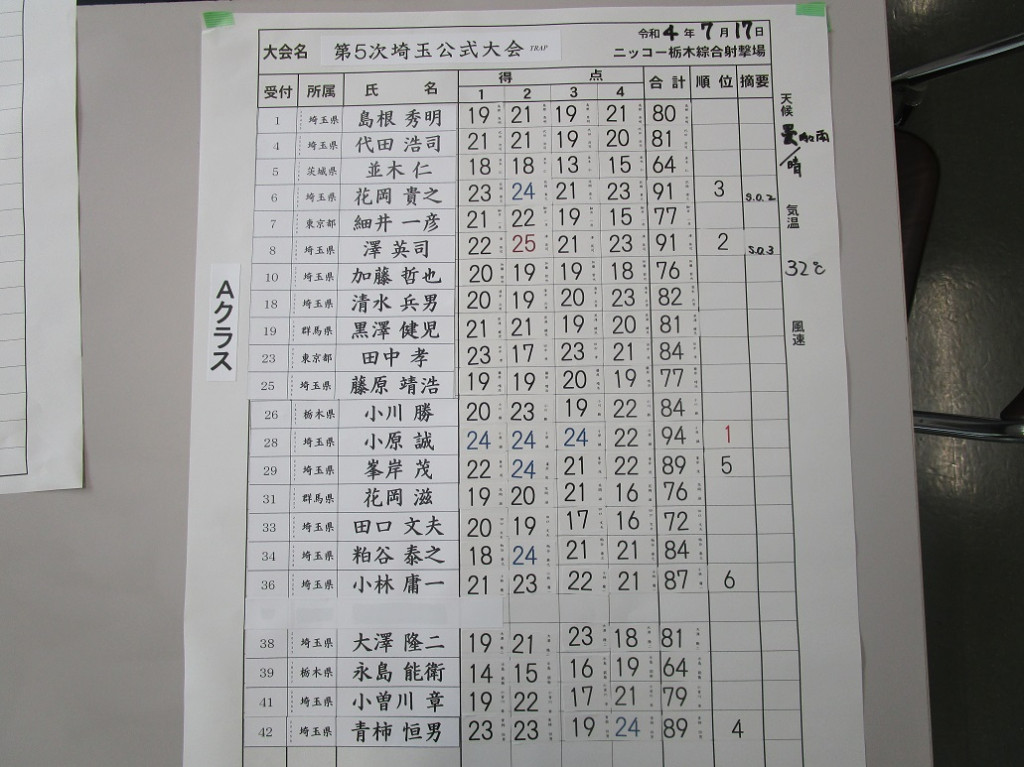 令和4年7月17日
大会名 第5次埼玉公式大会 TRAP ニッコー栃木綜合射撃場
受付 所属 氏名 得点 合計 順位 摘要
1 2 3 4
1 埼玉県 島根 秀明 19 21 19 21 80
4 埼玉県 代田 浩司 21 21 19 20 81
5 茨城県 並木 仁 18 18 13 15 64
6 埼玉県 花岡 貴之 23 24 21 23 91 3 S.O.2
7 東京都 細井 一彦 21 22 19 15 77
8 埼玉県 澤 英司 22 25 21 23 91 2 S.O.3
10 埼玉県 加藤 哲也 20 19 19 18 76
18 埼玉県 清水 兵男 20 19 20 23 82
19 群馬県 黒澤 健児 21 21 19 20 81
23 東京都 田中 孝 23 17 23 21 84
25 埼玉県 藤原 靖浩 19 19 20 19 77
26 栃木県 小川 勝 20 23 19 22 84
28 埼玉県 小原 誠 24 24 24 22 94 1
29 埼玉県 峯岸 茂 22 24 21 22 89 5
31 群馬県 花岡 滋 19 20 21 16 76
33 埼玉県 田口 文夫 20 19 17 16 72
34 埼玉県 粕谷 泰之 18 24 21 21 84
36 埼玉県 小林 庸一 21 23 22 21 87 6
38 埼玉県 大澤 隆二 19 21 23 18 81
39 栃木県 永島 能衛 14 15 16 19 64
41 埼玉県 小曽川 章 19 22 17 21 79
42 埼玉県 青柿 恒男 23 23 19 24 89 4
Aクラス
天候
曇
雨
/晴
気温
32℃
風速